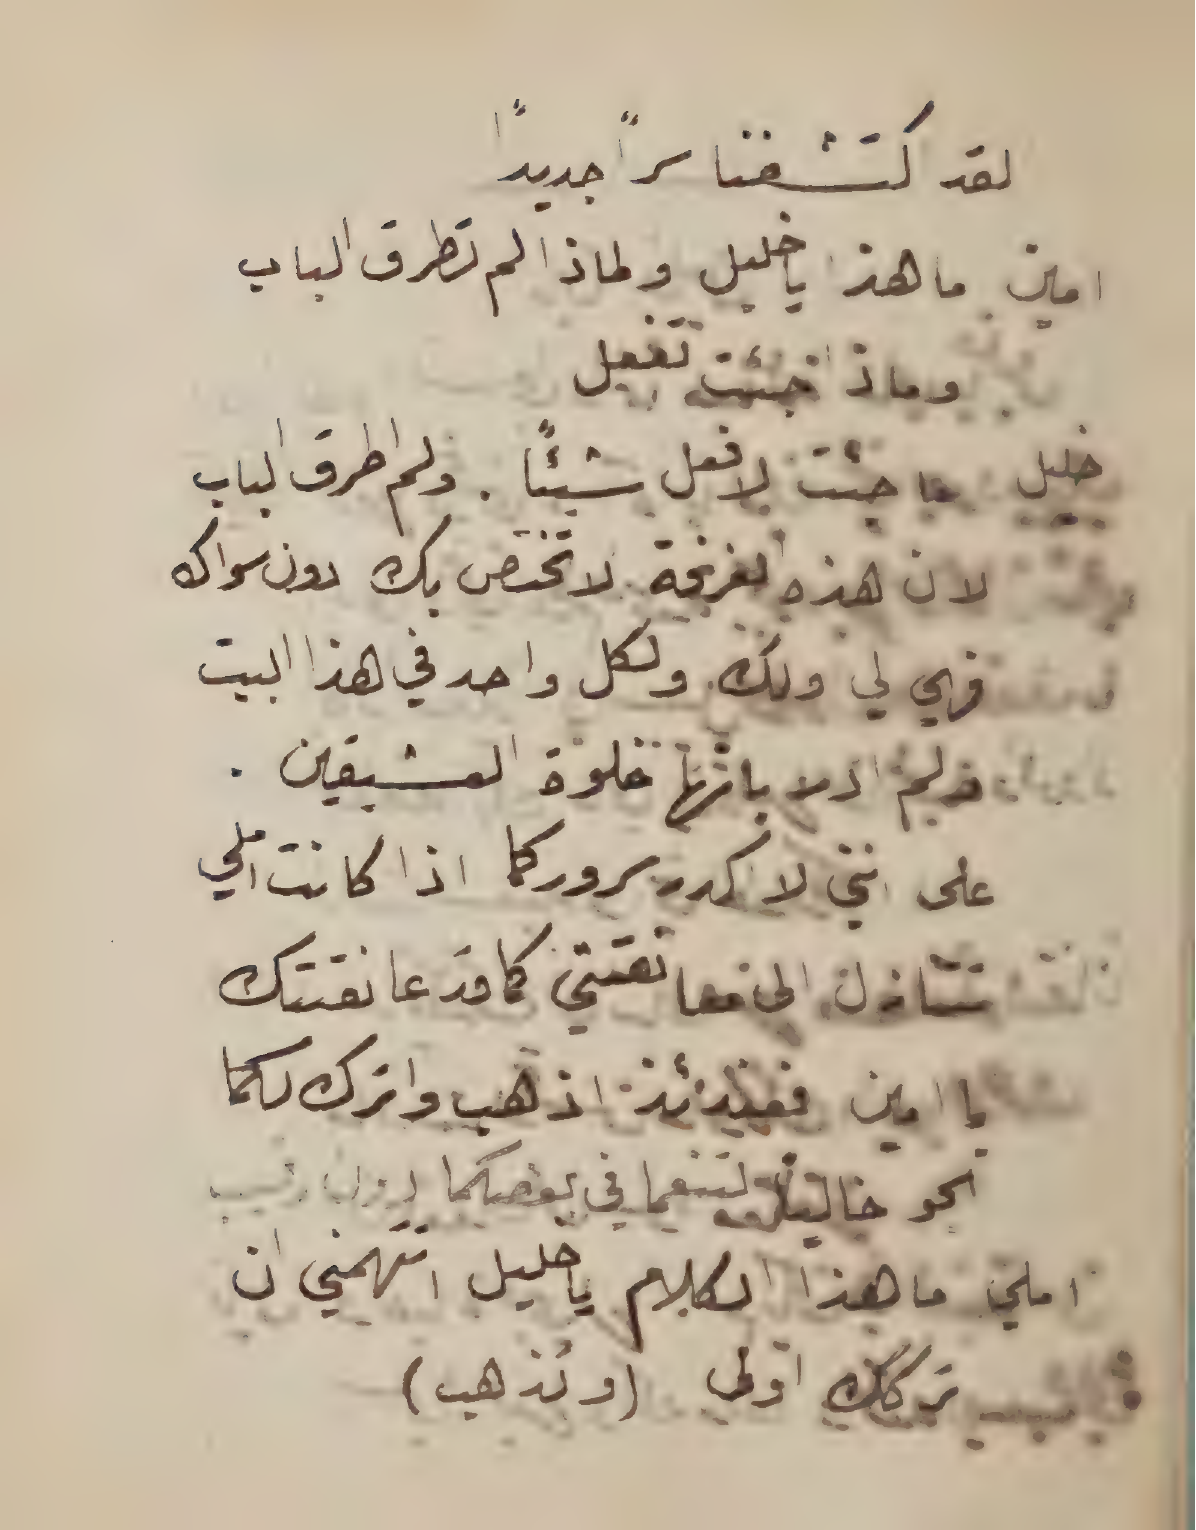 لقد كتشفنا سراً جديداً
امين ما هذا يا خليل ولماذا لم تطرق الباب
وماذا جئت تفعل
خليل ما جئت لافعل شيئاً . ولم اطرق الباب
لان هذه الغرفة لا تختص بك دون سواك
فهي لي ولك ولكل واحد في هذا البيت
بانها خلوة العشيقين .
على انني لا اكدر سروركما اذا كانت املي
تتنازل الى معانقتي كما قد عانقتك
يا امين فعندئذ اذهب واترك لكما
الجو خالياً لتنعما في بعضكما دون رقيب
املي ما هذا الكلام يا خليل اتتهمني ان
تركك اولى (وتذهب)